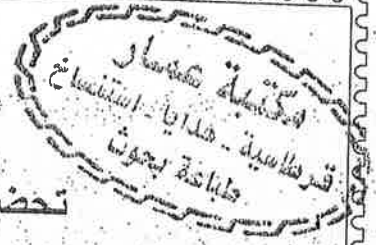 مكتبة عمار
قرطاسية - هدايا - استنساخ
طباعة بحوث
تحض